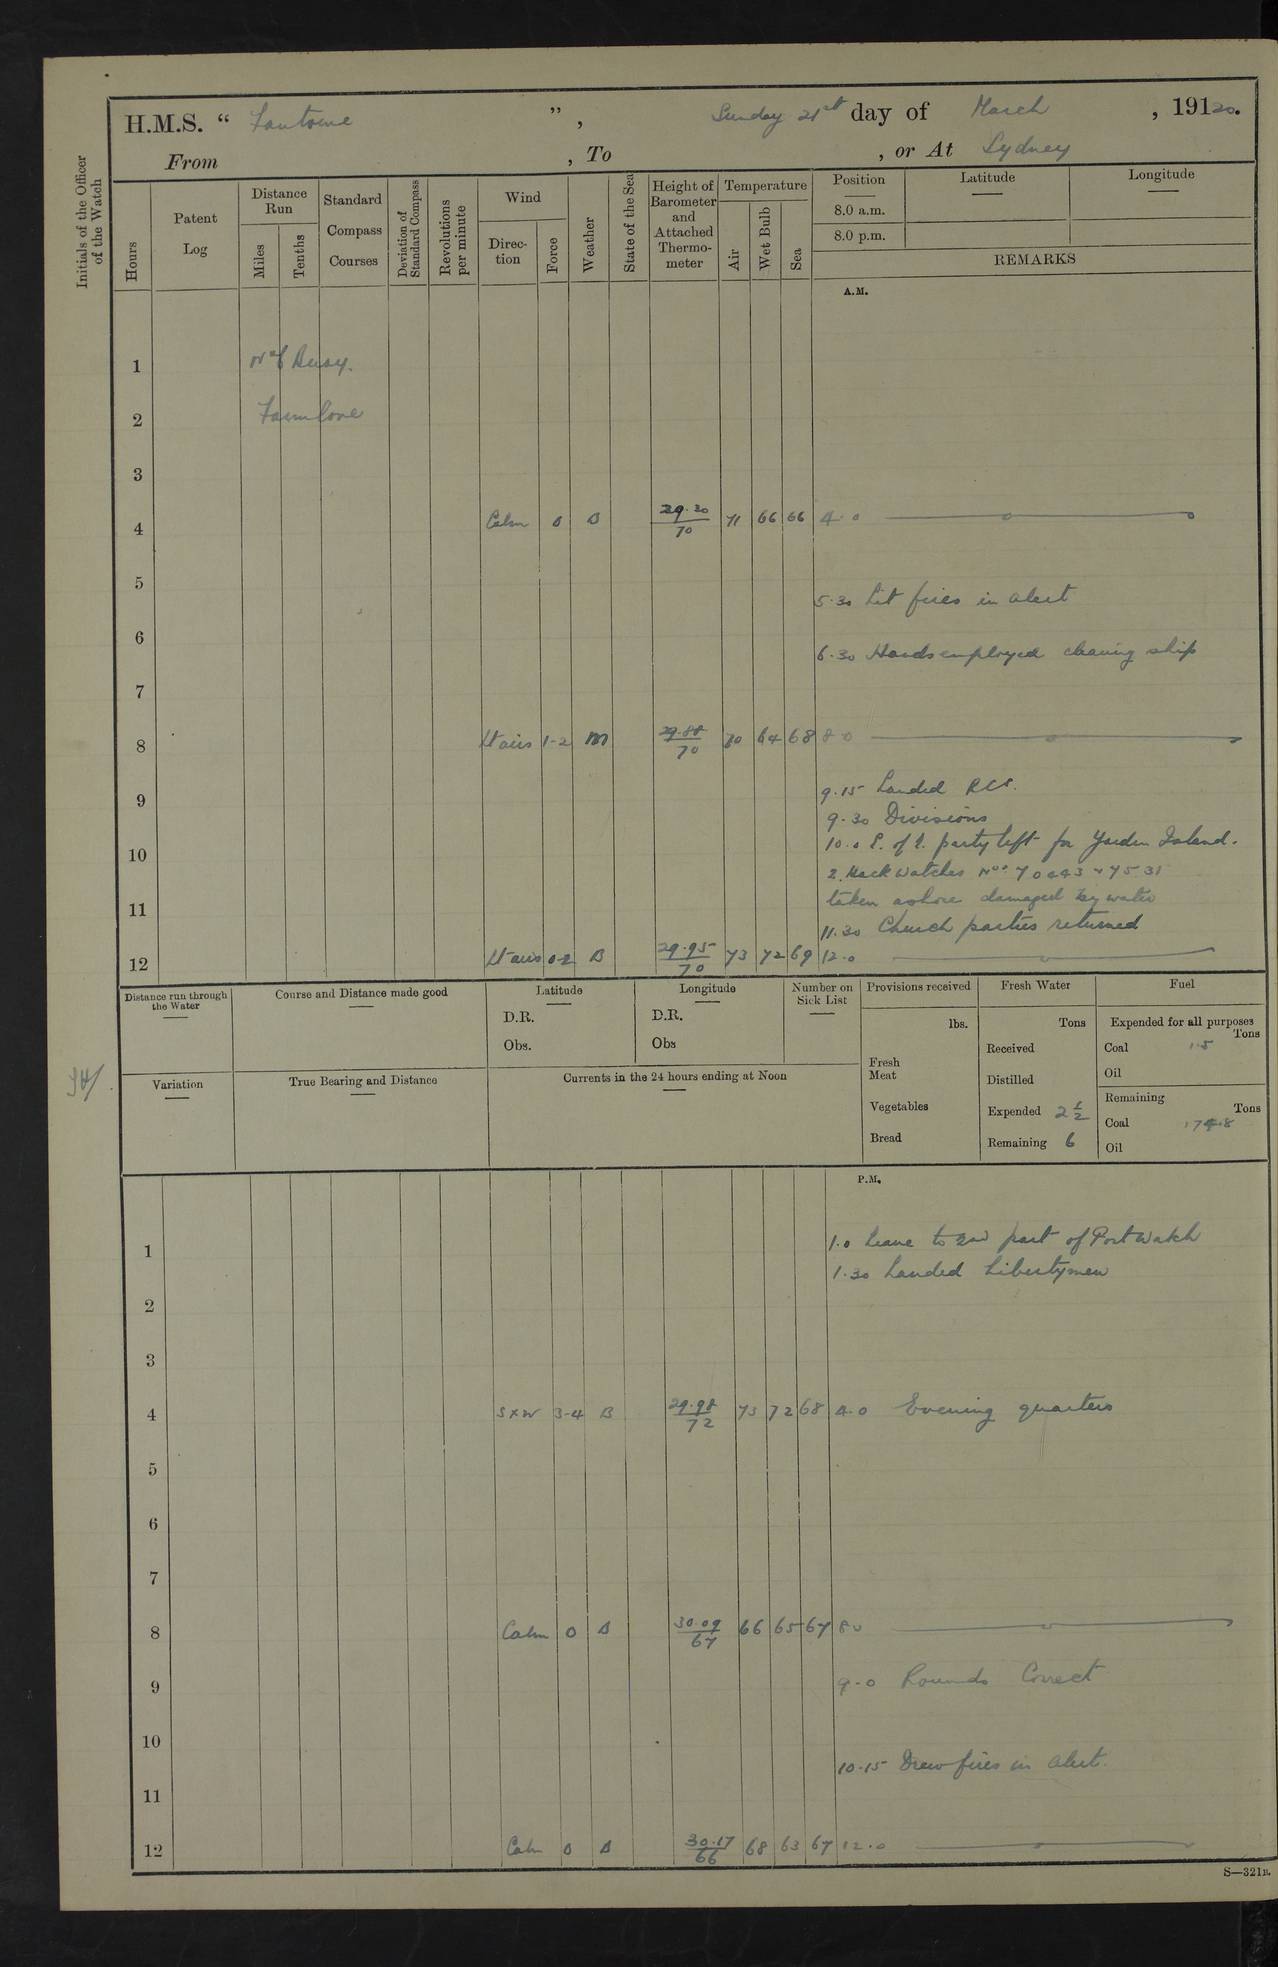 H.M.S. “ Fantome ”, Sunday 21st day of March , 19120.
From , To , or At Sydney
Initials of the Officer of the Watch
Hours
Patent Log
Distance Run
Miles
Tenths
Standard Compass Courses
Deviation of Standard Compass
Revolutions per minute
Wind
Direction
Force
Weather
State of the Sea
Height of Barometer and Attached Thermometer
Temperature
Air
Wet Bulb
Sea
Position
8.0 a.m.
8.0 p.m.
Latitude
Longitude
REMARKS
A.M.
1 No 6 Buoy.
2 Farm Cove
3
4 Calm 0 B 29.20/70 71 66 66 4.0
5
5.30 Lit fires in alert
6
6.30 Hands employed cleaning ship
7
8 Lt airs 1-2 m 29.88/70 70 64 68 8.0
9.15 Landed RCs.
9
9.30 Divisions
10.0 C. of E. party left for Garden Island.
10
2. Hack Watches Nos 70443 & 7531
taken ashore damaged by water
11
11.30 Church parties returned
12 Lt airs 0-2 B 29.95/70 73 72 69 12.0
Distance run through the Water
Course and Distance made good
Latitude
D.R.
Obs.
Longitude
D.R.
Obs
Number on Sick List
Provisions received
lbs.
Fresh Meat
Vegetables
Bread
Fresh Water
Tons
Received
Distilled
Expended 2 1/2
Remaining 6
Fuel
Expended for all purposes
Tons
Coal 1.5
Oil
Remaining
Tons
Coal 174.8
Oil
Variation
True Bearing and Distance
Currents in the 24 hours ending at Noon
P.M.
1.0 Leave to 2nd part of Port Watch
1
1.30 Landed Libertymen
2
3
4 S x W 3-4 B 29.98/72 73 72 68 4.0 Evening quarters
5
6
7
8 Calm 0 B 30.09/67 66 65 67 8.0
9 9.0 Rounds Correct
10
10.15 Drew fires in alert.
11
12 Calm 0 B 30.17/66 68 63 67 12.0
S—321B.